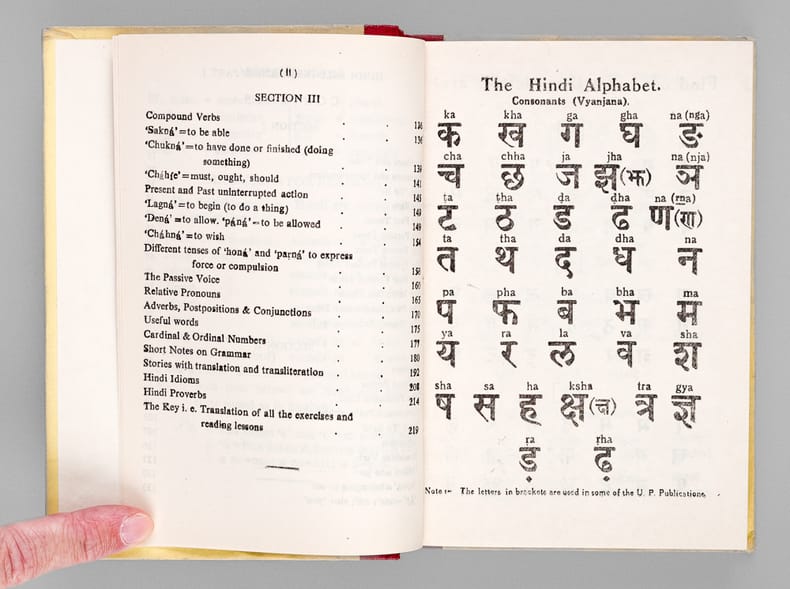 (II)
SECTION III
Compound Verbs . . 126
'Sakná'=to be able . . 136
'Chukná'=to have done or finished (doing
something) . . 139
'Cháhíe'=must, ought, should . . 141
Present and Past uninterrupted action . . 145
'Lagná'=to begin (to do a thing) . . 149
'Dená'=to allow. 'páná'=to be allowed . . 149
'Cháhná'=to wish . . 154
Different tenses of 'honá' and 'paṛná' to express
force or compulsion . . 158
The Passive Voice . . 160
Relative Pronouns . . 165
Adverbs, Postpositions & Conjunctions . . 170
Useful words . . 175
Cardinal & Ordinal Numbers . . 177
Short Notes on Grammar . . 180
Stories with translation and transliteration . . 192
Hindi Idioms . . 208
Hindi Proverbs . . 214
The Key i. e. Translation of all the exercises and
reading lessons . . 219
The Hindi Alphabet.
Consonants (Vyanjana).
ka kha ga gha na (nga)
क ख ग घ ङ
cha chha ja jha na (nja)
च छ ज झ(भ्क) ञ
ta tha da dha na (rna)
ट ठ ड ढ ण(ण)
ta tha da dha na
त थ द ध न
pa pha ba bha ma
प फ ब भ म
ya ra la va sha
य र ल व श
sha sa ha ksha tra gya
ष स ह क्ष(क्ष) त्र ज्ञ
ra rha
ड़ ढ़
Note :- The letters in brackets are used in some of the U. P. Publications.